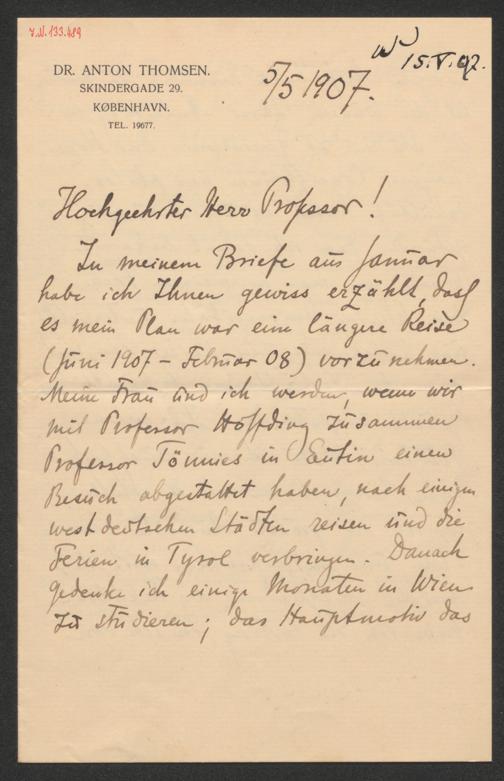 J.N. 133.489
15.V.07.
DR. ANTON THOMSEN.
SKINDERGADE 29.
KØBENHAVN.
TEL. 19677.
5/5 1907.
Hochgeehrter Herr Professor!
In meinem Briefe aus Januar
habe ich Ihnen gewiss erzählt, dass
es mein Plan war eine längere Reise
(Juni 1907 – Februar 08) vorzunehmen.
Meine Frau und ich werden, wenn wir
mit Professor Höffding zusammen
Professor Tönnies in Eutin einen
Besuch abgestattet haben, nach einigen
westdeutschen Städten reisen und die
Ferien in Tyrol verbringen. Danach
gedenke ich einige Monaten in Wien
zu studieren; das Hauptmotiv das